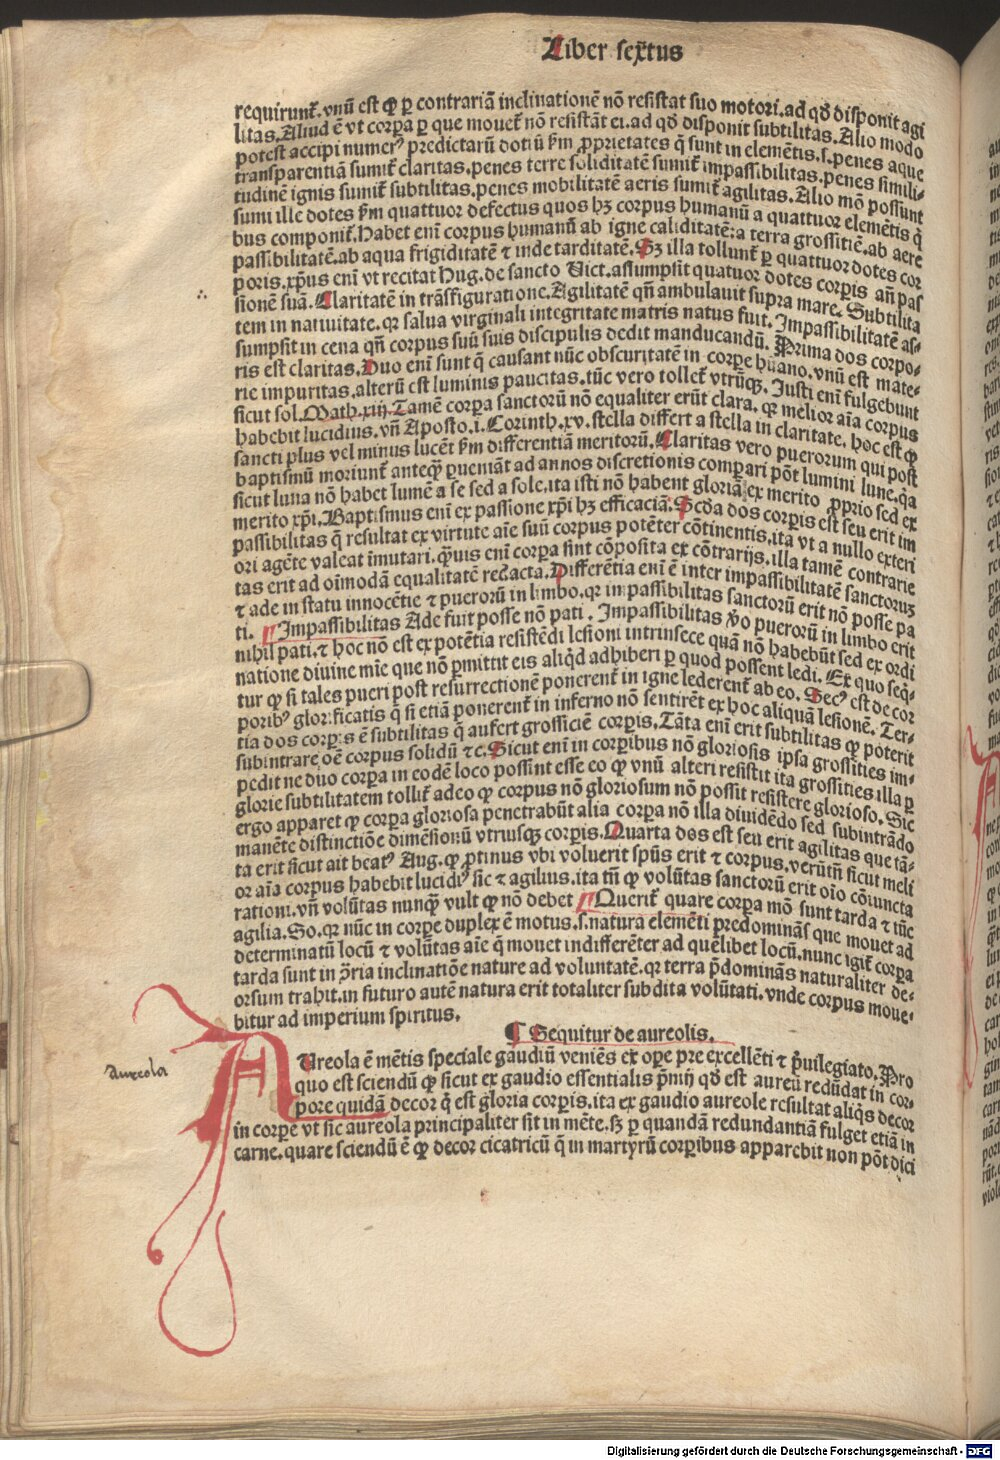 Liber sextus
requirunt̄. vnū est ꝙ ꝑ contrariā inclinationē nō resistat suo motori. ad qđ disponit agi
litas. Aliud ē vt corꝑa ꝑ que mouet̄ nō resistāt ei. ad qđ disponit subtilitas. Alio modo
potest accipi numerꝰ predictarū dotiū ẜm ꝓprietates q̄ sunt in elemētis. s. penes aque
transparentiā sumit̄ claritas. penes terre soliditatē sumit̄ impassibilitas. penes simili-
tudinē ignis sumit̄ subtilitas. penes mobilitatē aeris sumit̄ agilitas. Alio mō possunt
sumi ille dotes ẜm quattuor defectus quos hꝫ corpus humanū a quattuor elemētis q̇
bus componit̄. Habet eni corpus humanū ab igne caliditatē: a terra grossitiē. ab aere
passibilitatē. ab aqua frigiditatē ⁊ inde tarditatē. Sꝫ illa tollunt̄ ꝑ quattuor dotes cor
poris. xp̄us eni vt recitat Hug. de sancto Vict. assumpsit quatuor dotes corꝑis añ pas
sionē suā. Claritatē in trāsfiguratione. Agilitatē qñ ambulauit supra mare. Subtilita
tem in natiuitate. qꝛ salua virginali integritate matris natus fuit. Impassibilitatē as-
sumpsit in cena qñ corpus suū suis discipulis dedit manducandū. Prima dos corpo-
ris est claritas. Duo eni sunt q̄ causant nūc obscuritatē in corꝑe hūano. vnū est mate-
rie impuritas. alterū est luminis paucitas. tūc vero tollet̄ vtrūqꝫ. Iusti eni fulgebunt
sicut sol. Math. xiij. Tamē corꝑa sanctorū nō equaliter erūt clara. qꝛ melior aīa corpus
habebit lucidius. vñ Aposto. i. Corinth. xv. stella differt a stella in claritate. hoc est ꝙ
sancti plus vel minus lucēt ẜm differentiā meritorū. Claritas vero puerorum qui post
baptismū moriunt̄ anteq̄ꝫ ꝑueniāt ad annos discretionis comꝑari pōt lumini lune. q̇a
sicut luna nō habet lumē a se sed a sole. ita isti nō habent gloriā ex merito ꝓprio sed ex
merito xp̄i. Baptismus eni ex passione xp̄i hꝫ efficaciā. Secđa dos corꝑis est seu erit im
passibilitas q̄ resultat ex virtute aīe suū corpus potēter cōtinentis. ita vt a nullo exteri
ori agēte valeat īmutari. q̄uis eni corꝑa sint cōposita ex cōtrarijs. illa tamē contrarie
tas erit ad oīmodā equalitatē redacta. Differētia eni ē inter impassibilitatē sanctoruꝫ
⁊ ade in statu innocētie ⁊ puerorū in limbo. qꝛ impassibilitas sanctorū erit nō posse pa
ti. Impassibilitas Ade fuit posse nō pati. Impassibilitas v̊o puerorū in limbo erit
nihil pati. ⁊ hoc nō est ex potētia resistēdi lesioni intrinsece quā nō habebūt sed ex ordi
natione diuine mīe que nō ꝑmittit eis aliq̇d adhiberi ꝑ quod possent ledi. Ex quo seq̇-
tur ꝙ si tales pueri post resurrectionē ponerent̄ in igne lederent̄ ab eo. Secꝰ est de cor
poribꝰ glorificatis q̇ si etiā ponerent̄ in inferno nō sentirēt ex hoc aliquā lesionē. Ter-
tia dos corꝑis ē subtilitas q̄ aufert grossiciē corꝑis. Tāta eni erit subtilitas ꝙ poterit
subintrare oē corpus solidū ⁊c. Sicut eni in corꝑibus nō gloriosis ipsa grossities im-
pedit ne duo corꝑa in eodē loco possint esse eo ꝙ vnū alteri resistit ita grossities illa ꝑ
glorie subtilitatem tollit̄ adeo ꝙ corpus nō gloriosum nō possit resistere glorioso. Sic
ergo apparet ꝙ corꝑa gloriosa penetrabūt alia corꝑa nō illa diuidēdo sed subintrādo
manēte distinctiōe dimēsionū vtriusqꝫ corꝑis. Quarta dos est seu erit agilitas que tā-
ta erit sicut ait beatꝰ Aug. ꝙ ꝓtinus vbi voluerit sp̄us erit ⁊ corpus. verūtñ sicut meli
or aīa corpus habebit lucidiꝰ sic ⁊ agilius. ita tñ ꝙ volūtas sanctorū erit oīo cōiuncta
rationi. vñ volūtas nunq̄ꝫ vult ꝙ nō debet Querit̄ quare corꝑa mō sunt tarda ⁊ tūc
agilia. So. qꝛ nūc in corꝑe duplex ē motus. s. natura elemēti p̄dominās que mouet ad
determinatū locū ⁊ volūtas aīe q̄ mouet indifferēter ad quēlibet locū. nunc igit̄ corꝑa
tarda sunt in ꝯ̄ria inclinatiōe nature ad voluntatē. qꝛ terra p̄dominās naturaliter de-
orsum trahit. in futuro autē natura erit totaliter subdita volūtati. vnde corpus moue-
bitur ad imperium spiritus.
¶ Sequitur de aureolis.
aureola
AUreola ē mētis speciale gaudiū veniēs ex oꝑe pre excellēti ⁊ p̄uilegiato. Pro
quo est sciendū ꝙ sicut ex gaudio essentialis p̄mij qđ est aureū redūdat in cor-
pore quidā decor q̇ est gloria corꝑis. ita ex gaudio aureole resultat aliq̇s decor
in corꝑe vt sic aureola principaliter sit in mēte. sꝫ ꝑ quandā redundantiā fulget etiā in
carne. quare sciendū ē ꝙ decor cicatricū q̇ in martyrū corꝑibus apparebit non pōt dici
Digitalisierung gefördert durch die Deutsche Forschungsgemeinschaft - DFG